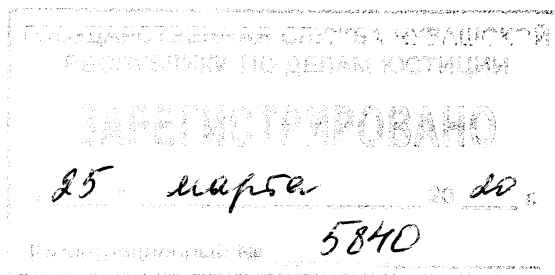 ГОСУДАРСТВЕННАЯ СЛУЖБА ЧУВАШСКОЙ
РЕСПУБЛИКИ ПО ДЕЛАМ ЮСТИЦИИ
ЗАРЕГИСТРИРОВАНО
25 марта 20 20 г.
Регистрационный № 5840